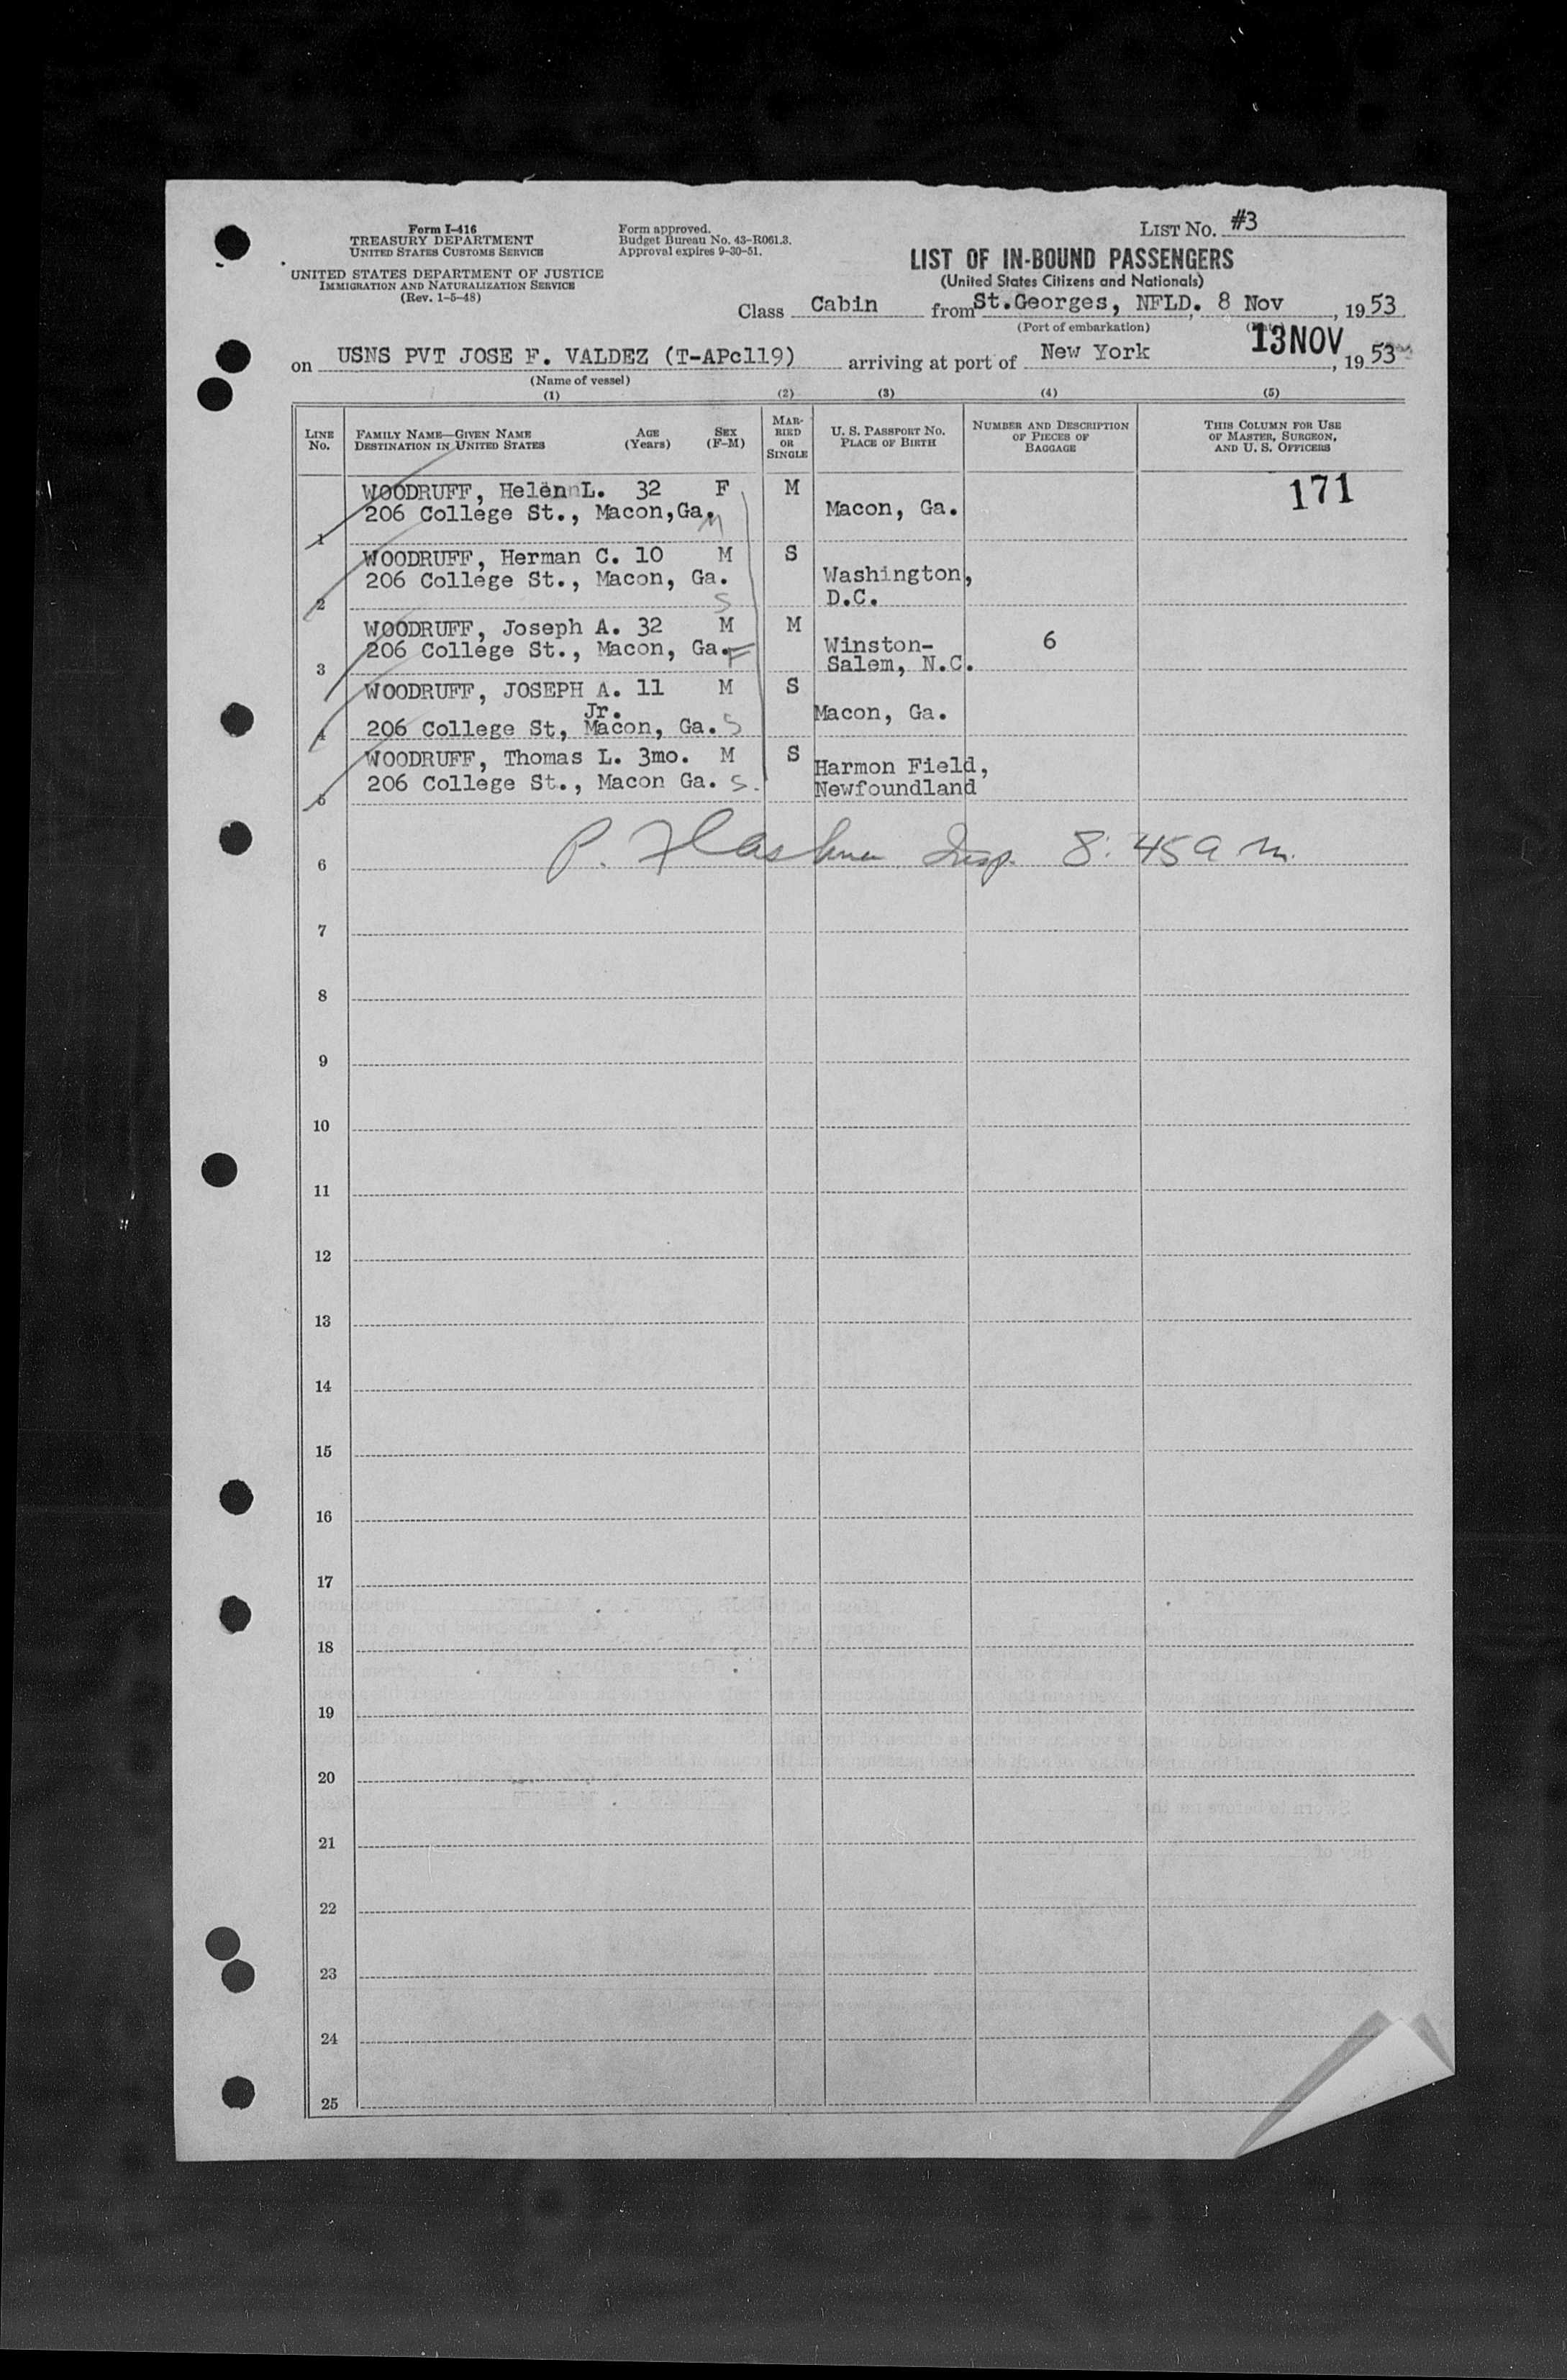 Form I-416
TREASURY DEPARTMENT
UNITED STATES CUSTOMS SERVICE
UNITED STATES DEPARTMENT OF JUSTICE
IMMIGRATION AND NATURALIZATION SERVICE
(Rev. 1-5-48)
Form approved.
Budget Bureau No. 43-R061.3.
Approval expires 9-30-51.
LIST NO. #3
LIST OF IN-BOUND PASSENGERS
(United States Citizens and Nationals)
Class Cabin from St.Georges, NFLD. 8 Nov, 1953
(Port of embarkation)
on USNS PVT JOSE F. VALDEZ (T-APc119) arriving at port of New York 13NOV, 1953
(Name of vessel)
(1) (2) (3) (4) (5)
LINE No. FAMILY NAME—GIVEN NAME DESTINATION IN UNITED STATES AGE (Years) SEX (F-M) MARRIED OR SINGLE U. S. PASSPORT NO. PLACE OF BIRTH NUMBER AND DESCRIPTION OF PIECES OF BAGGAGE THIS COLUMN FOR USE OF MASTER, SURGEON, AND U. S. OFFICERS
WOODRUFF, Helen L. 32 F M 171
206 College St., Macon,Ga. Macon, Ga.
1 M
WOODRUFF, Herman C. 10 M S
206 College St., Macon, Ga. Washington,
2 S D.C.
WOODRUFF, Joseph A. 32 M M
206 College St., Macon, Ga. F Winston- 6
3 Salem, N.C.
WOODRUFF, JOSEPH A. 11 M S
Jr. Macon, Ga.
4 206 College St, Macon, Ga. S
WOODRUFF, Thomas L. 3mo. M S Harmon Field,
206 College St., Macon Ga. S. Newfoundland
5
6 P. Insp. 8:45 a m.
7
8
9
10
11
12
13
14
15
16
17
18
19
20
21
22
23
24
25